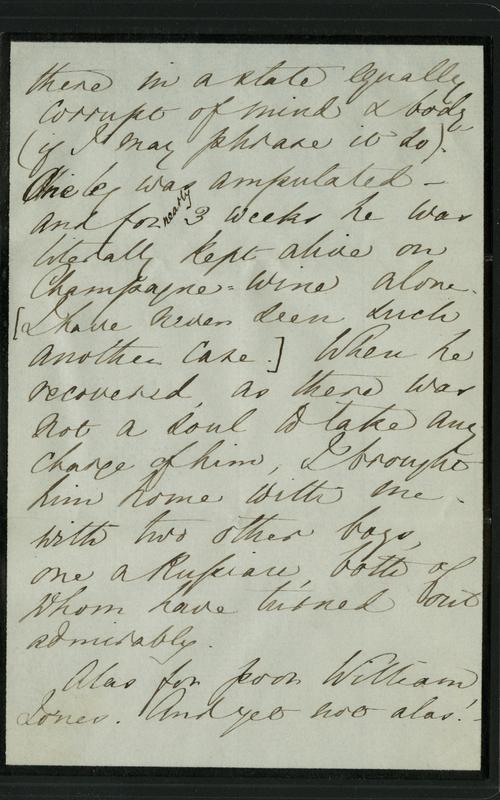 there in a state equally
corrupt of mind & body
(if I may phrase it so).
One leg was amputated -
and for nearly 3 weeks he was
literally kept alive on
Champagne-wine alone.
[I have never seen such
another case.] When he
recovered, as there was
not a soul to take any
charge of him, I brought
him home with me -
with two other boys,
one a Russian, both of
whom have turned out
admirably.
Alas for poor William
Jones. And yet not alas! -